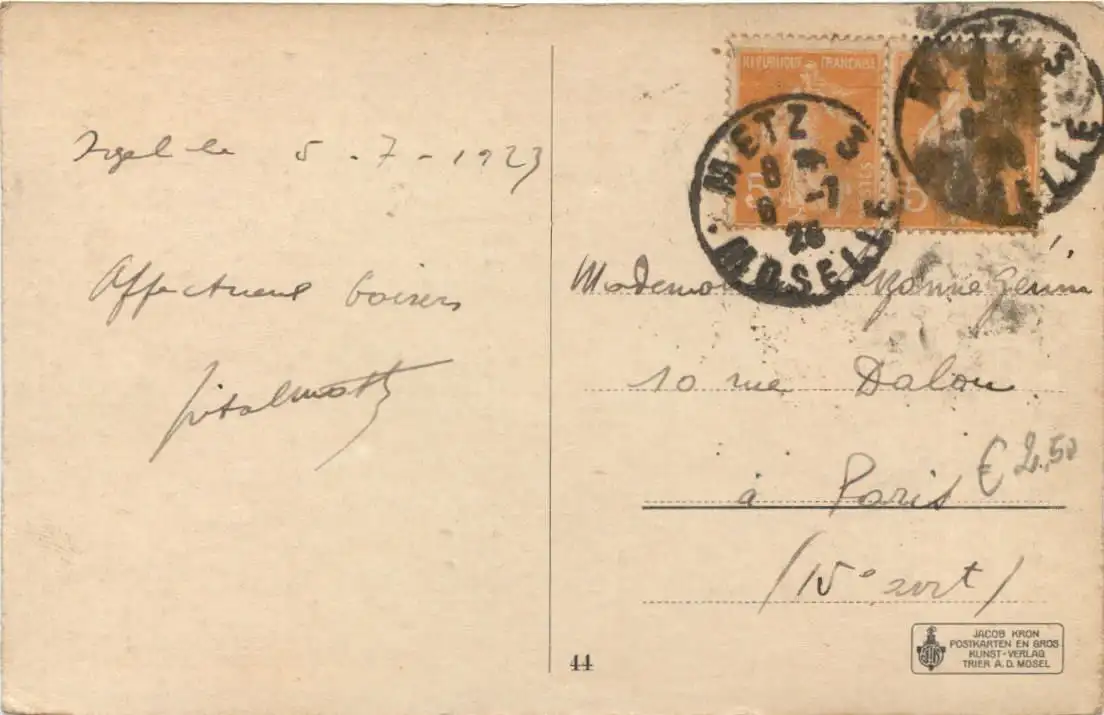 Igel le 5-7-1923
Affectueux baisers
RÉPUBLIQUE FRANÇAISE
METZ 3
8
6 -7
MOSELLE
METZ 3
MOSELLE
5
5
Gérin
10 rue Dalou
à Paris
€ 2,50
(15e arrt)
44
JACOB KRON
POSTKARTEN EN GROS
KUNST-VERLAG
TRIER A.D. MOSEL